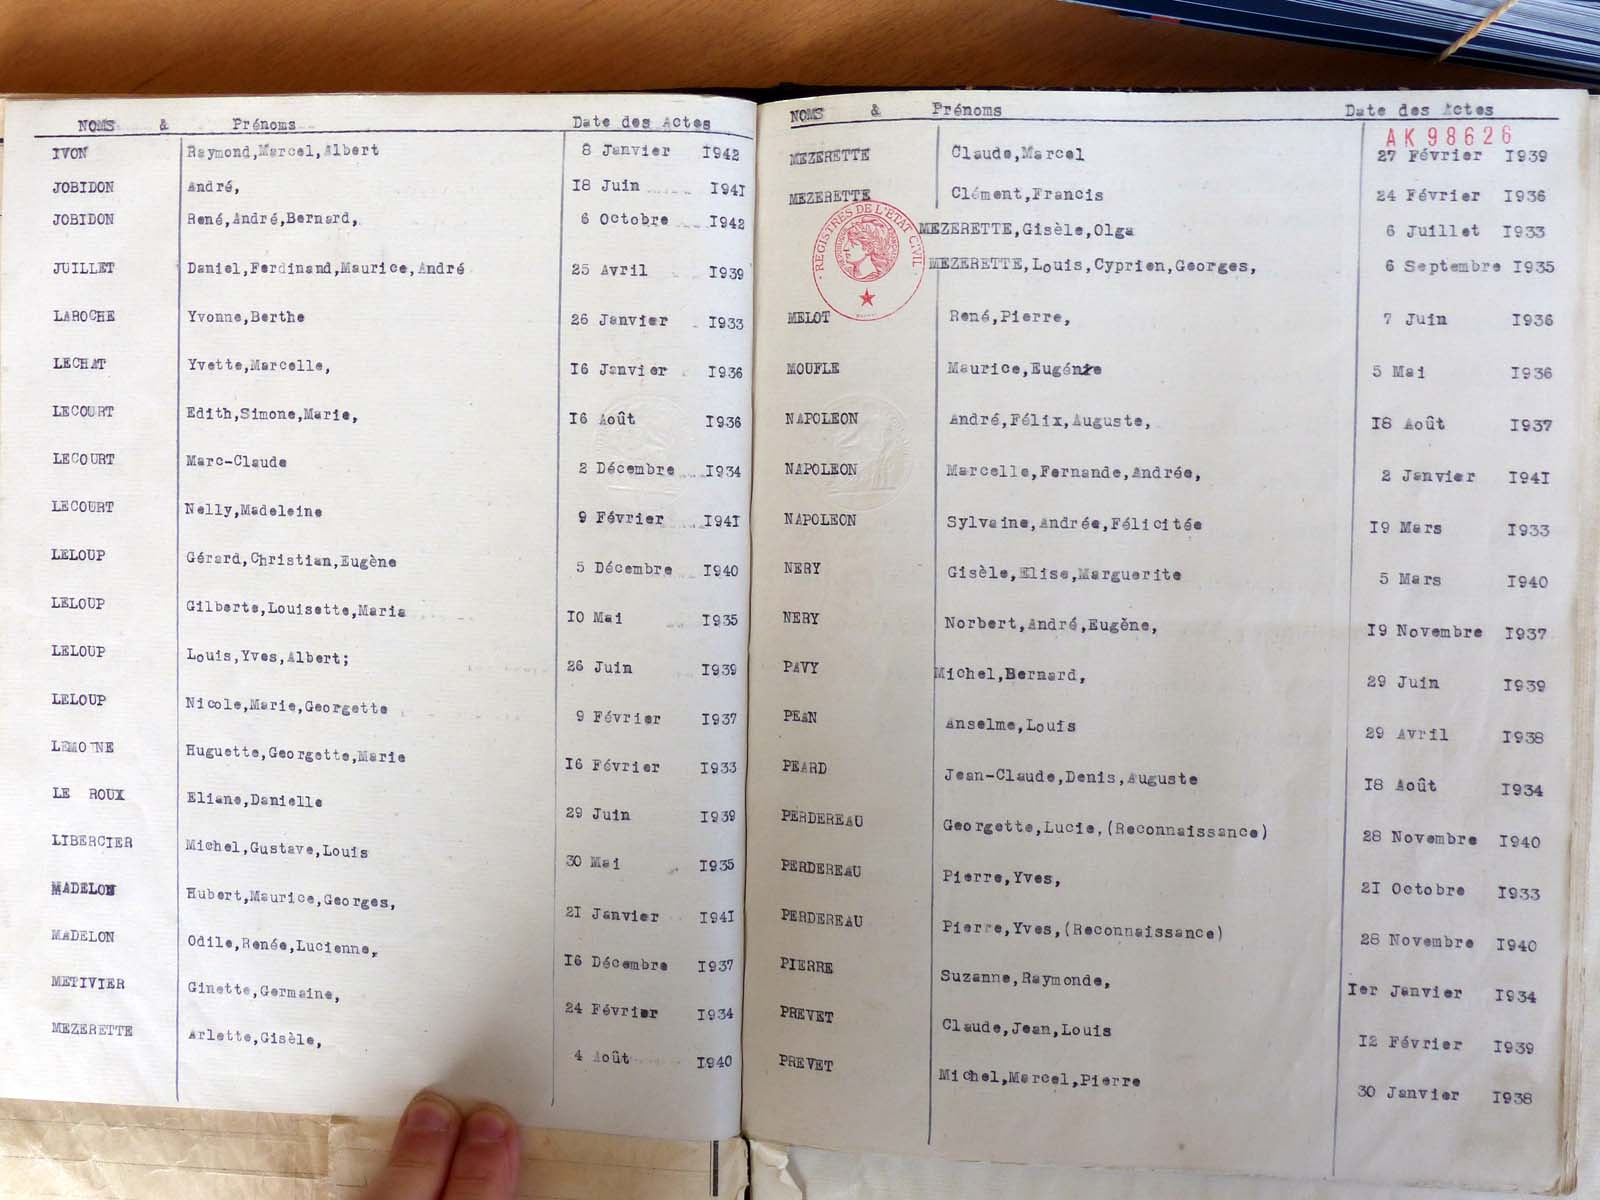 NOMS & Prénoms Date des Actes
IVON Raymond,Marcel,Albert 8 Janvier I942
JOBIDON André, I8 Juin I94I
JOBIDON René,André,Bernard, 6 Octobre I942
JUILLET Daniel,Ferdinand,Maurice,André 25 Avril I939
LAROCHE Yvonne,Berthe 26 Janvier I933
LECHAT Yvette,Marcelle, I6 Janvier I936
LECOURT Edith,Simone,Marie, I6 Août I936
LECOURT Marc-Claude 2 Décembre I934
LECOURT Nelly,Madeleine 9 Février I94I
LELOUP Gérard,Christian,Eugène 5 Décembre I940
LELOUP Gilberte,Louisette,Maria IO Mai I935
LELOUP Louis,Yves,Albert; 26 Juin I939
LELOUP Nicole,Marie,Georgette 9 Février I937
LEMOINE Huguette,Georgette,Marie I6 Février I933
LE ROUX Eliane,Danielle 29 Juin I939
LIBERCIER Michel,Gustave,Louis 30 Mai I935
MADELON Hubert,Maurice,Georges, 2I Janvier I94I
MADELON Odile,Renée,Lucienne, I6 Décembre I937
METIVIER Ginette,Germaine, 24 Février I934
MEZERETTE Arlette,Gisèle, 4 Août I940
NOMS & Prénoms Date des Actes
AK98626
MEZERETTE Claude,Marcel 27 Février I939
MEZERETTE Clément,Francis 24 Février I936
REGISTRES DE L'ETAT CIVIL
MEZERETTE,Gisèle,Olga 6 Juillet I933
MEZERETTE,Louis,Cyprien,Georges, 6 Septembre I935
MELOT René,Pierre, 7 Juin I936
MOUFLE Maurice,Eugénie 5 Mai I936
NAPOLEON André,Félix,Auguste, I8 Août I937
NAPOLEON Marcelle,Fernande,Andrée, 2 Janvier I94I
NAPOLEON Sylvaine,Andrée,Félicitée I9 Mars I933
NERY Gisèle,Elise,Marguerite 5 Mars I940
NERY Norbert,André,Eugène, I9 Novembre I937
PAVY Michel,Bernard, 29 Juin I939
PEAN Anselme,Louis 29 Avril I938
PEARD Jean-Claude,Denis,Auguste I8 Août I934
PERDEREAU Georgette,Lucie,(Reconnaissance) 28 Novembre I940
PERDEREAU Pierre,Yves, 2I Octobre I933
PERDEREAU Pierre,Yves,(Reconnaissance) 28 Novembre I940
PIERRE Suzanne,Raymonde, Ier Janvier I934
PREVET Claude,Jean,Louis I2 Février I939
PREVET Michel,Marcel,Pierre 30 Janvier I938